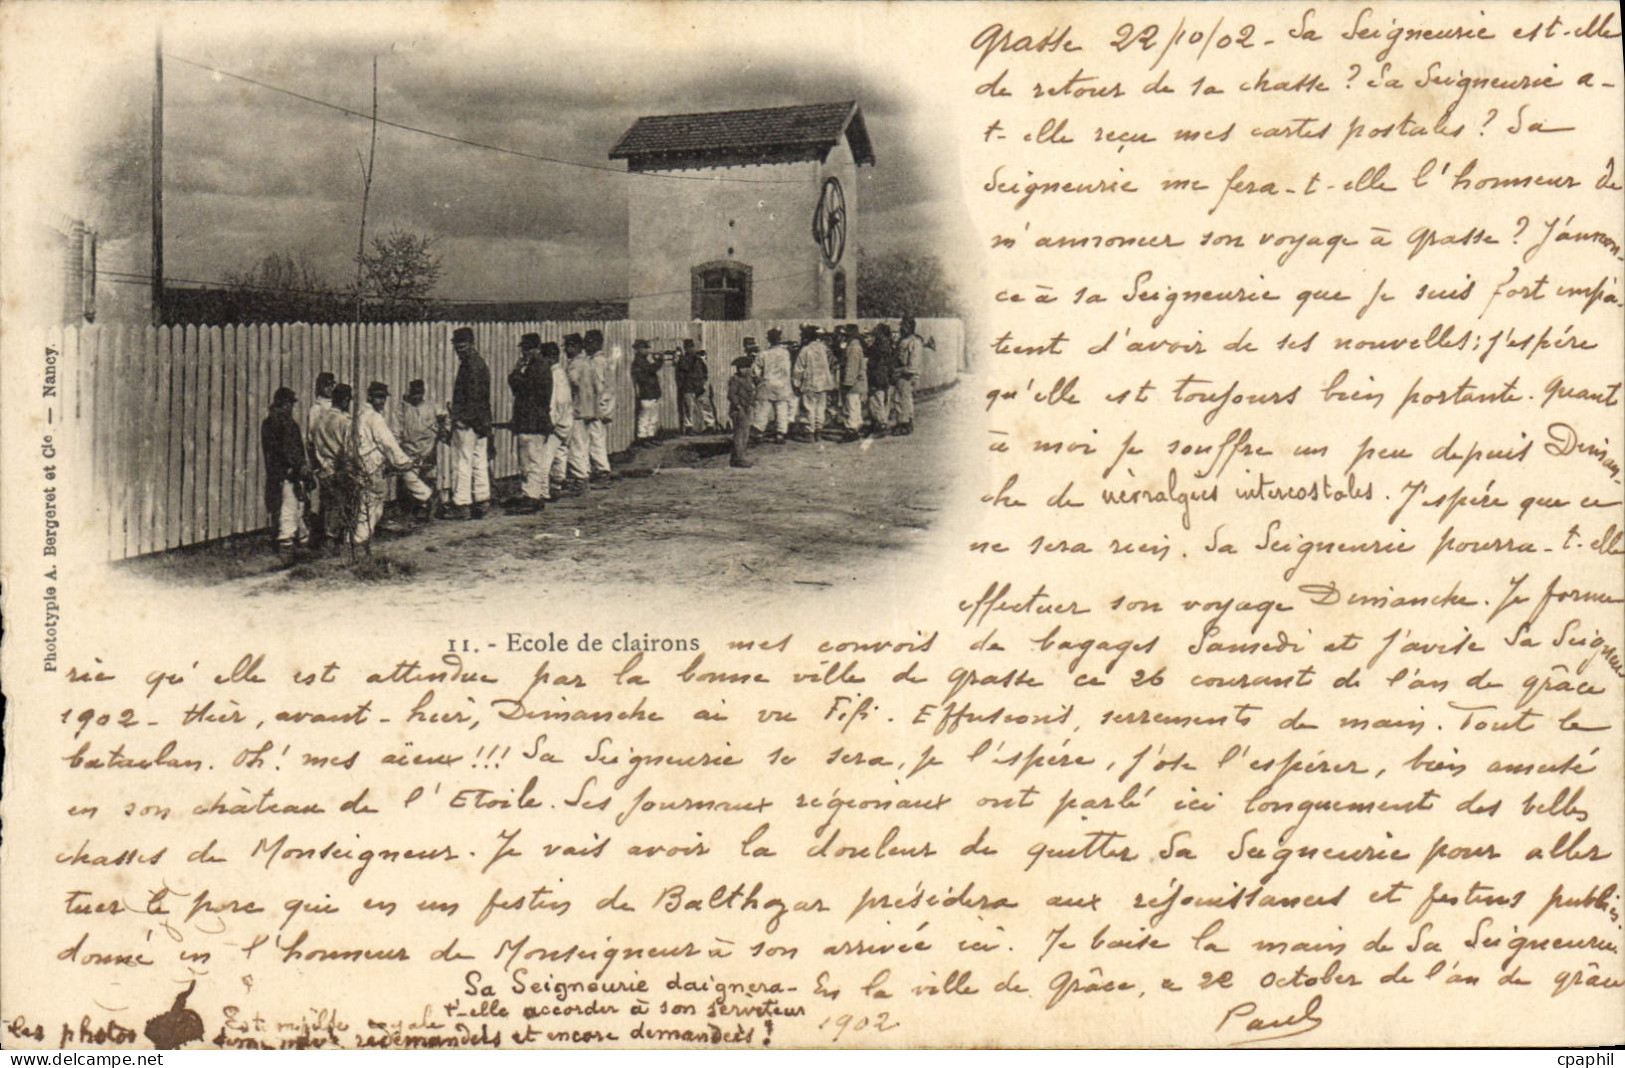 Grasse 22/10/02 - Sa Seigneurie est-elle
de retour de sa chasse ? Sa Seigneurie a-
t-elle reçu mes cartes postales ? Sa
Seigneurie me fera-t-elle l'honneur de
m'annoncer son voyage à Grasse ? J'annon-
ce à sa Seigneurie que je suis fort impa-
tient d'avoir de ses nouvelles ; j'espère
qu'elle est toujours bien portante. Quant
à moi je souffre un peu depuis Diman-
che de nèvralgies intercostales. J'espère que ce
ne sera rien. Sa Seigneurie pourra-t-elle
effectuer son voyage Dimanche. Je forme
11. - Ecole de clairons
mes convois de bagages Samedi et j'avise Sa Seigneu
rie qu'elle est attendue par la bonne ville de Grasse ce 26 courant de l'an de grâce
1902 - Hier, avant-hier, Dimanche ai vu Fifi. Effusions, serrements de main. Tout le
bataclan. Oh ! mes aïeux !!! Sa Seigneurie se sera, je l'espère, j'ose l'espérer, bien amusé
en son château de l'Etoile. Les journaux régionaux ont parlé ici longuement des belles
chasses de Monseigneur. Je vais avoir la douleur de quitter Sa Seigneurie pour aller
tuer le porc qui en un festin de Balthazar présidera aux réjouissances et festins publics
donné en l'honneur de Monseigneur à son arrivée ici. Je baise la main de Sa Seigneurie.
En la ville de Grâce, a 22 October de l'an de grâce
1902
Paul
Sa Seigneurie daignera-
t'-elle accorder à son serviteur
les photos redemandés et encore demandées !
Phototypie A. Bergeret et Cie — Nancy.
cpaphil